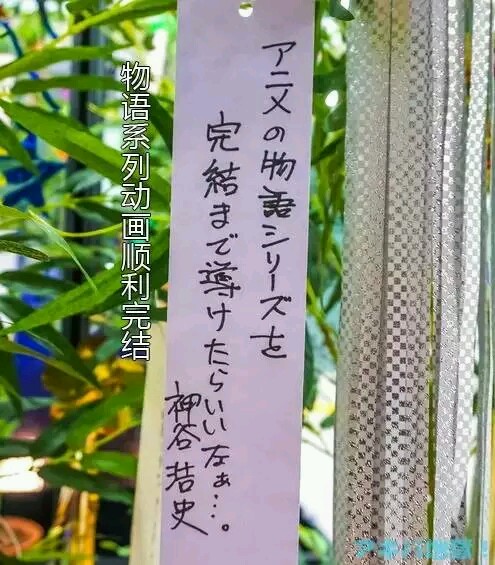 アニメの物語シリーズを
完結まで導けたらいいなぁ…。
神谷浩史
物语系列动画顺利完结